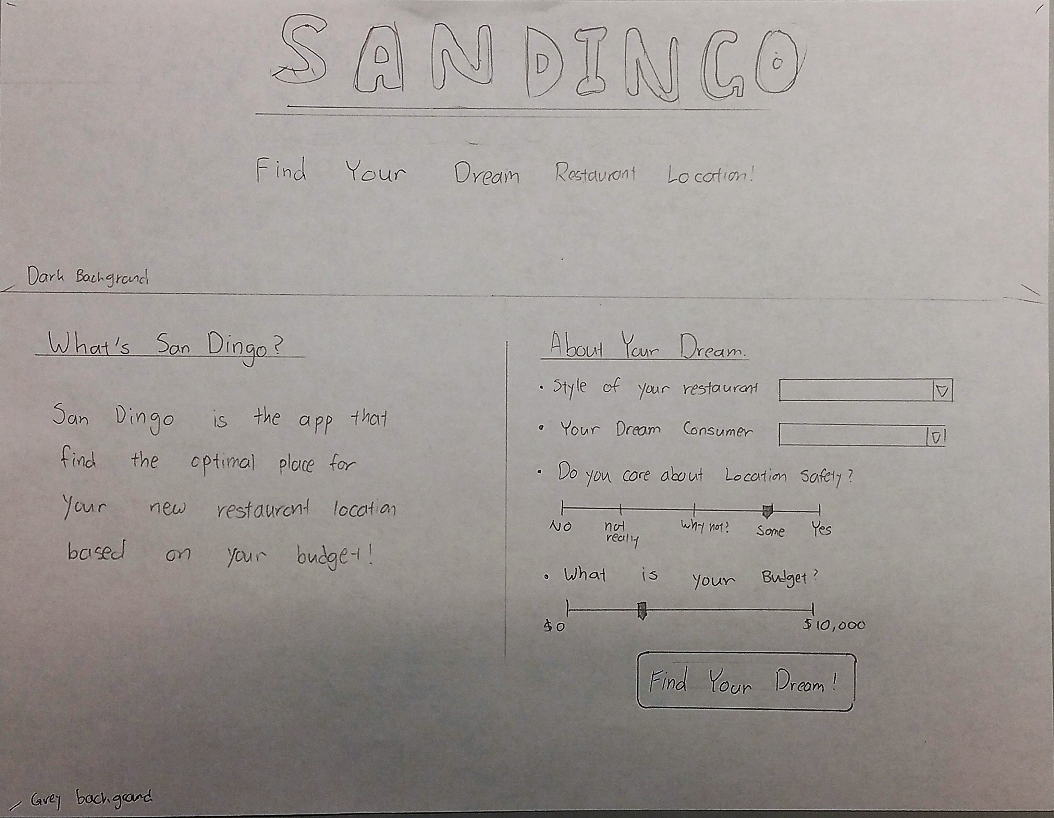 SAN DINGO
Find Your Dream Restaurant Location!
Dark Background
What's San Dingo?
San Dingo is the app that
find the optimal place for
Your new restaurant location
based on your budget!
About Your Dream.
• Style of your restaurant
• Your Dream Consumer
• Do you care about Location Safety?
No not really Why not? Some Yes
• What is your Budget?
$0 $10,000
Find Your Dream!
Grey background